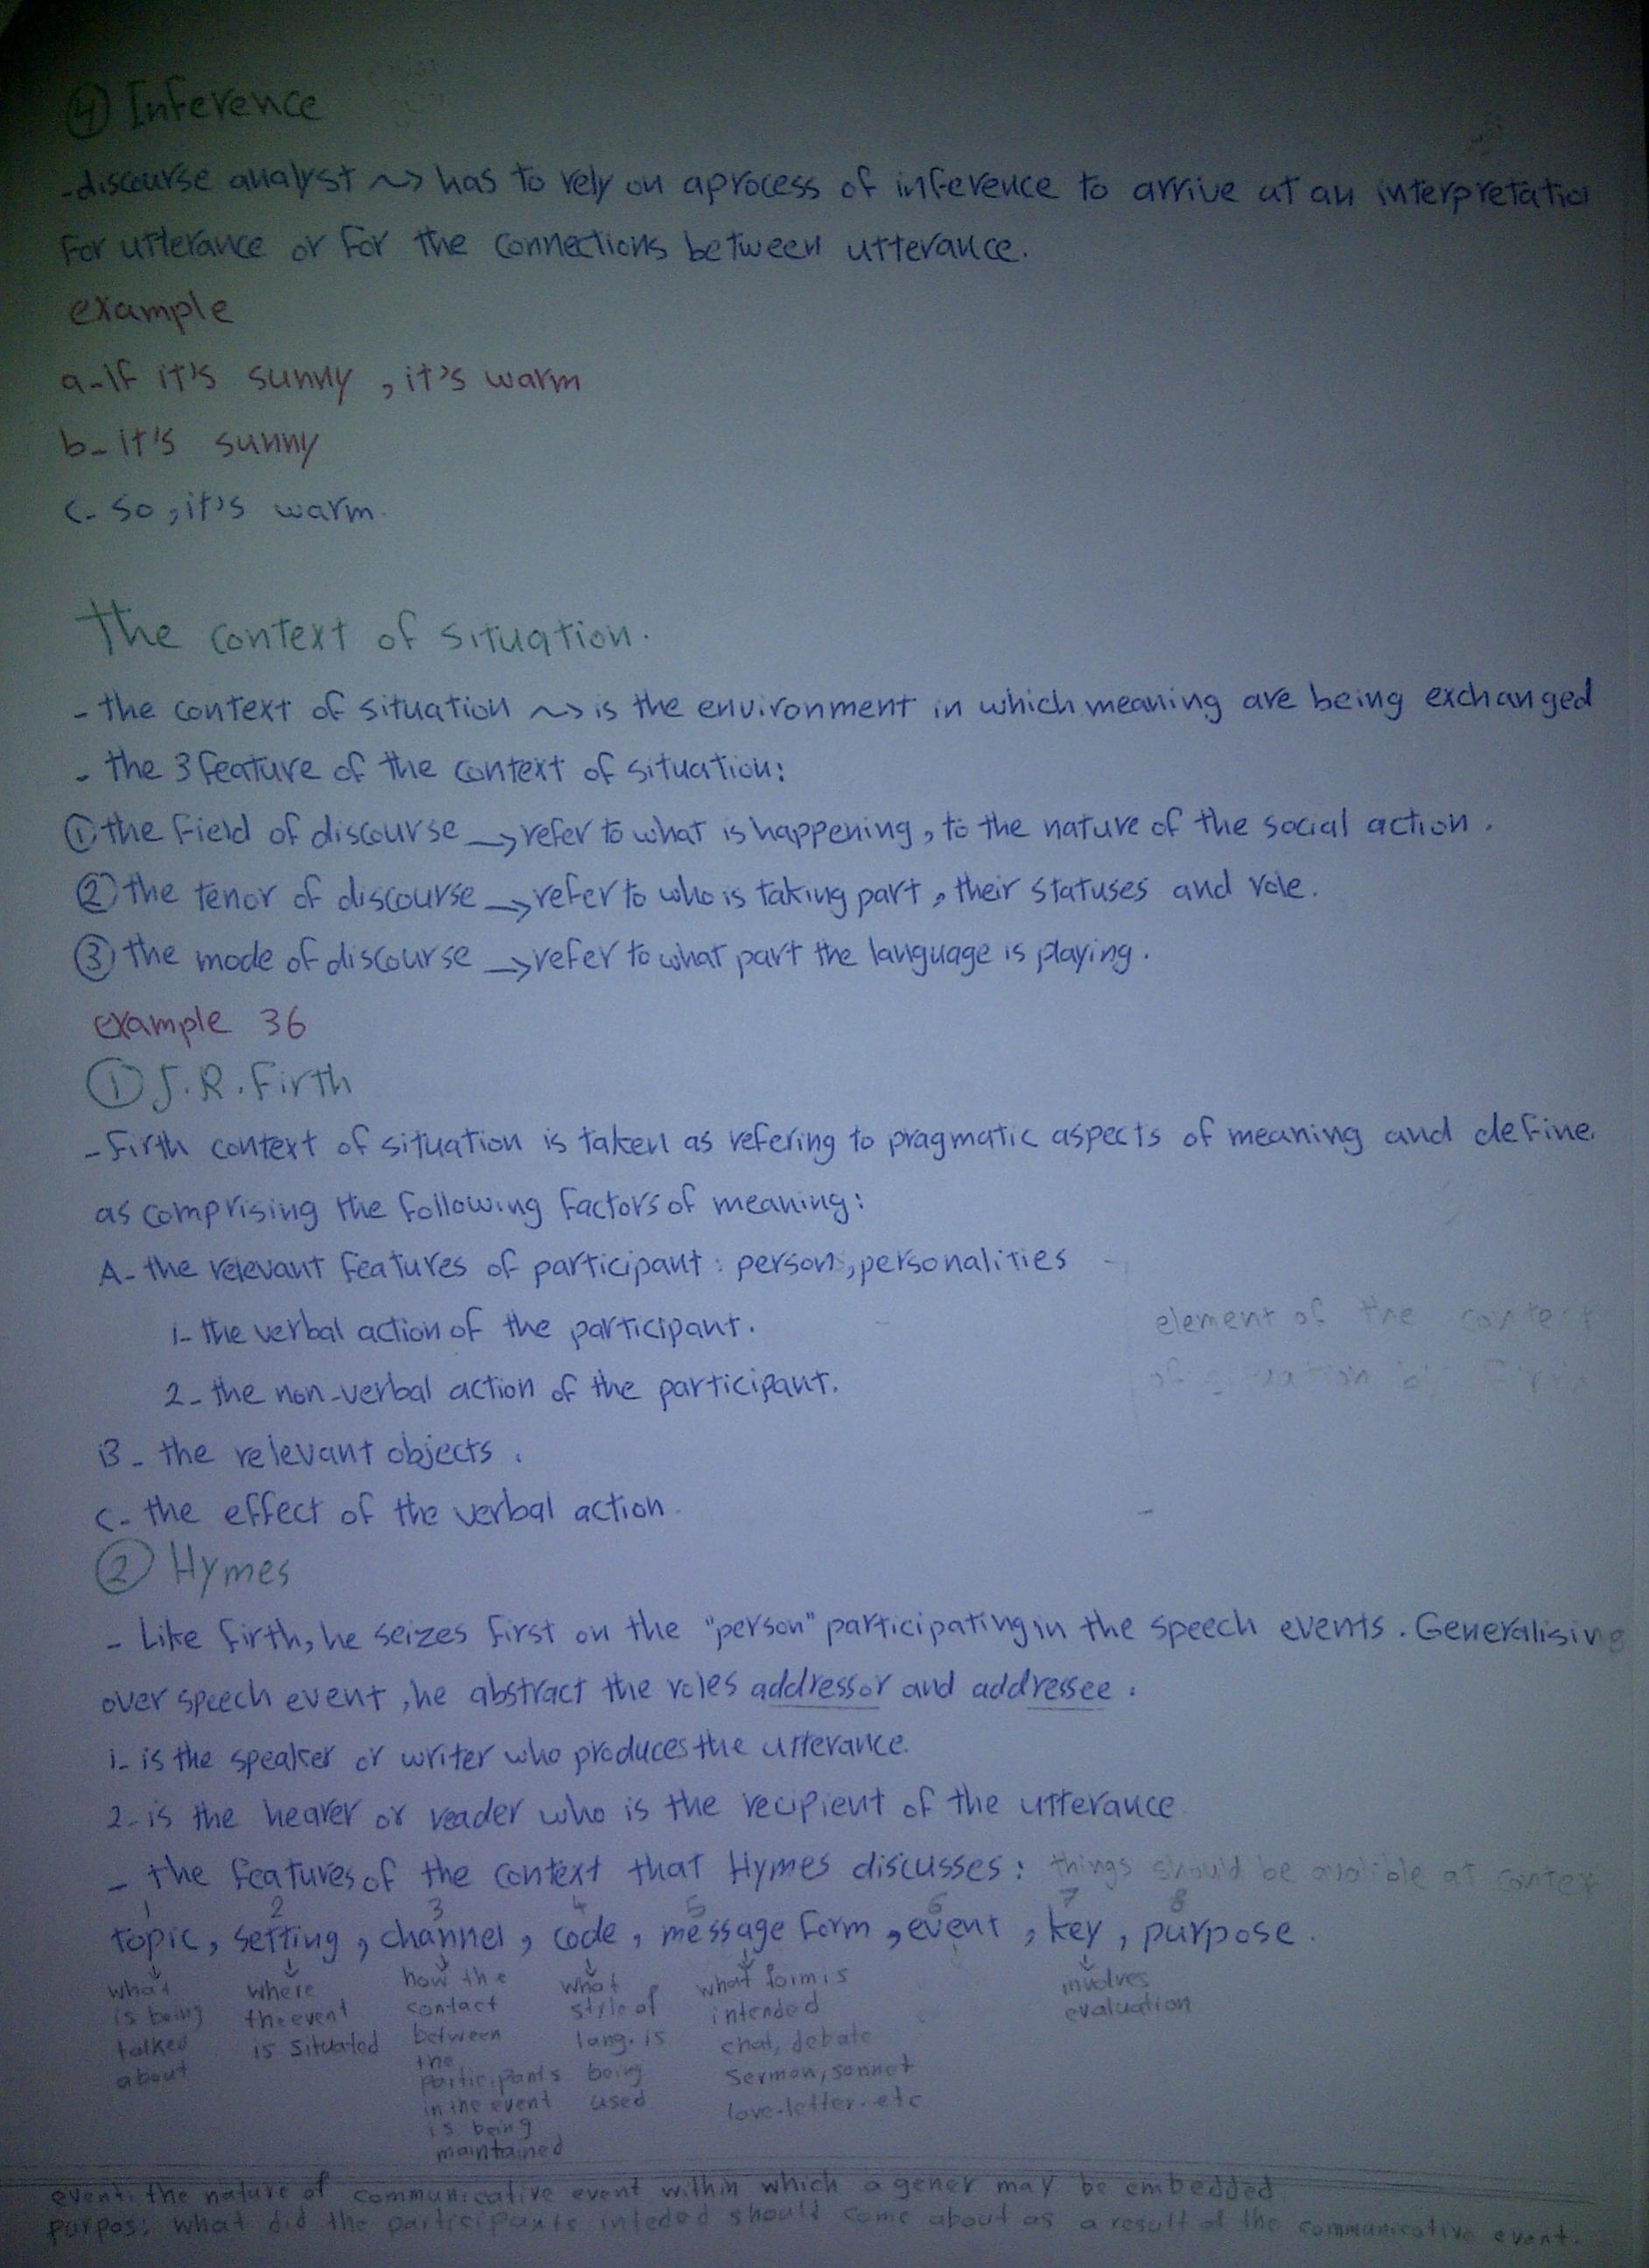 ④ Inference
-discourse analyst ~> has to rely on aprocess of inference to arrive at an interpretatio
For utterance or for the connections between utterance.
example
a-If it's sunny , it's warm
b- it's sunny
c- so , it's warm.
The context of situation.
- the context of situation ~> is the environment in which meaning are being exchanged
- the 3 feature of the context of situation:
① the field of discourse → refer to what is happening, to the nature of the social action .
② the tenor of discourse → refer to who is taking part , their statuses and role.
③ the mode of discourse → refer to what part the language is playing.
example 36
① J.R. Firth
- Firth context of situation is taken as refering to pragmatic aspects of meaning and define.
as comprising the following factors of meaning:
A- the relevant features of participant : person, personalities
1- the verbal action of the participant.
element of the context
2- the non-verbal action of the participant.
of situation by Firth
B- the relevant objects .
C- the effect of the verbal action.
② Hymes
- Like firth, he seizes first on the "person" participating in the speech events . Generalising
over speech event , he abstract the roles addressor and addressee .
1- is the speaker or writer who produces the utterance.
2- is the hearer or reader who is the recipient of the utterance
- the features of the context that Hymes discusses : things should be avalible at contex
1 2 3 4 5 6 7 8
topic, setting , channel , code , message form , event , key , purpose .
↓ what is being talked about
↓ where the event is situated
↓ how the contact between the participants in the event is being maintained
↓ what style of lang. is being used
↓ what form is intended chat, debate Sermon, sonnet love-letter. etc
↓ involves evaluation
event: the nature of communicative event within which a gener may be embedded
purpos: what did the participants inteded should come about as a result of the communicative event.